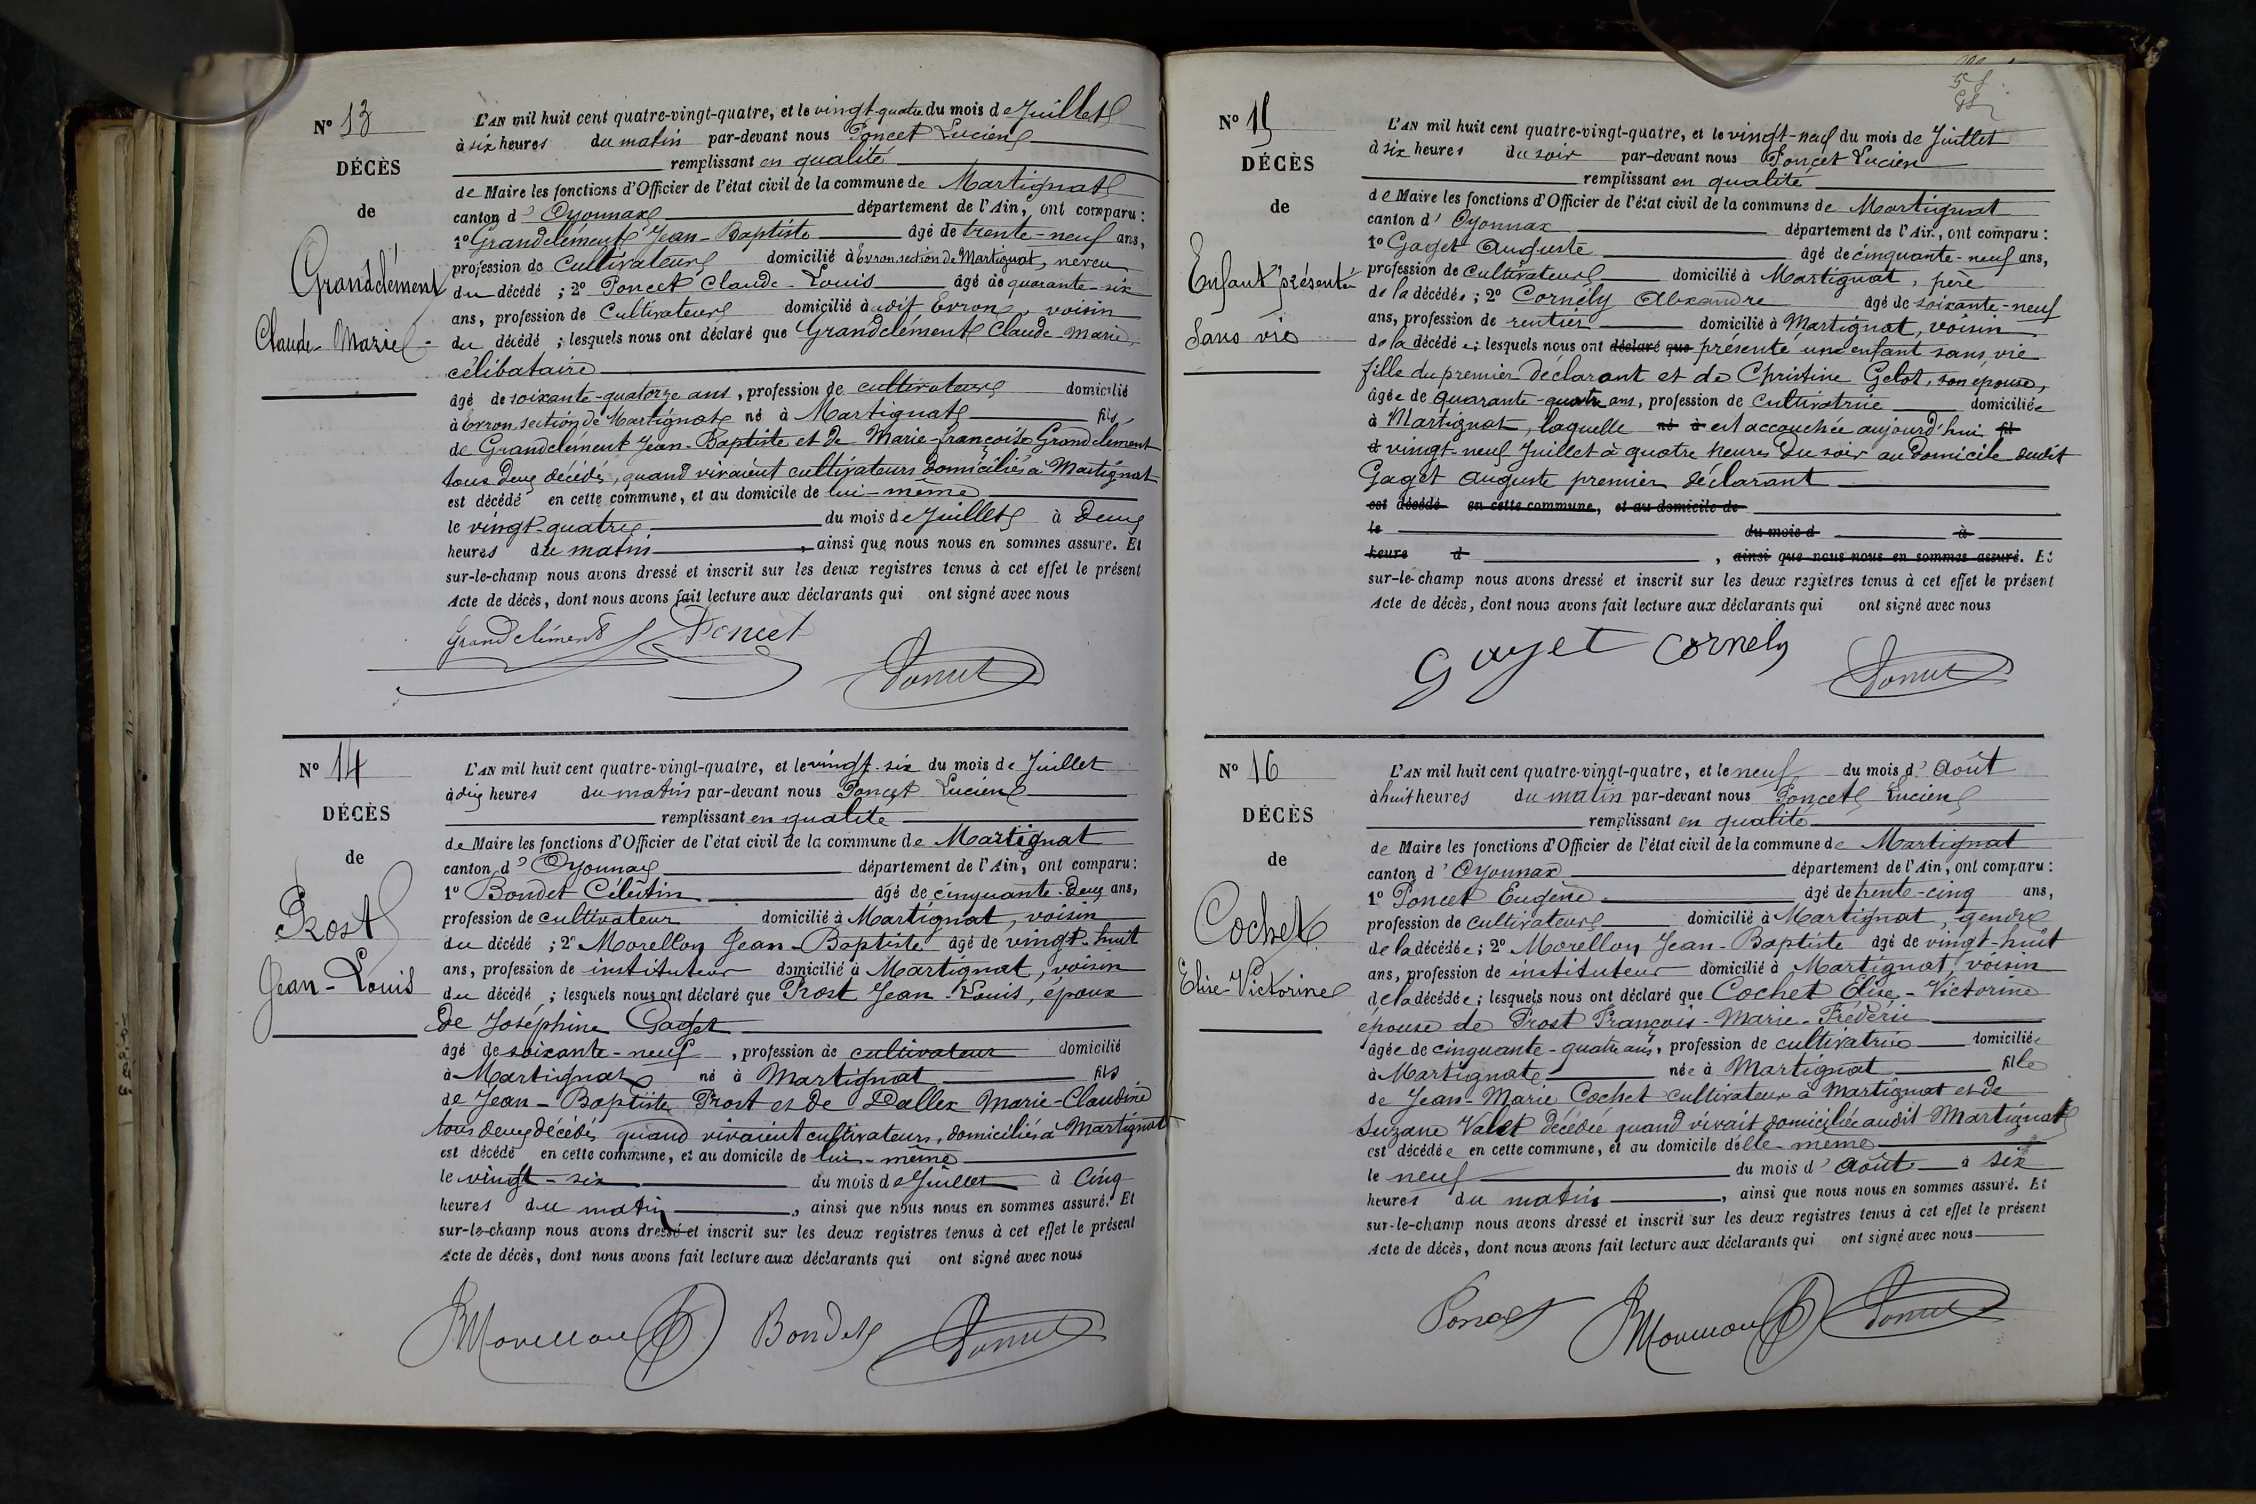 Nº 13
DÉCÈS
de
Grandclément
Claude-Marie
L'AN mil huit cent quatre-vingt-quatre, et le vingt-quatre du mois de Juillet
à six heures du matin par-devant nous Poncet Lucien
remplissant en qualité
de Maire les fonctions d'Officier de l'état civil de la commune de Martignat
canton d'Oyonnax département de l'Ain, ont comparu :
1º Grandclément Jean-Baptiste âgé de trente-neuf ans,
profession de Cultivateur domicilié à Evron section de Martignat, neveu
du décédé ; 2º Poncet Claude-Louis âgé de quarante-six
ans, profession de Cultivateur domicilié audit Evron, voisin
du décédé ; lesquels nous ont déclaré que Grandclément Claude-Marie,
célibataire
âgé de soixante-quatorze ans, profession de cultivateur domicilié
à Evron section de Martignat né à Martignat fils
de Grandclément Jean-Baptiste et de Marie-françoise Grandclément
tous deux décédés, quand vivaient cultivateurs domiciliés à Martignat
est décédé en cette commune, et au domicile de lui-même
le vingt-quatre du mois de Juillet à Deux
heures du matin, ainsi que nous nous en sommes assuré. Et
sur-le-champ nous avons dressé et inscrit sur les deux registres tenus à cet effet le présent
Acte de décès, dont nous avons fait lecture aux déclarants qui ont signé avec nous
Grandclément Poncet
Poncet
Nº 14
DÉCÈS
de
Prost
Jean-Louis
L'AN mil huit cent quatre-vingt-quatre, et le vingt-six du mois de Juillet
à dix heures du matin par-devant nous Poncet Lucien
remplissant en qualité
de Maire les fonctions d'Officier de l'état civil de la commune de Martignat
canton d'Oyonnax département de l'Ain, ont comparu :
1º Bondet Célestin âgé de cinquante-deux ans,
profession de cultivateur domicilié à Martignat, voisin
du décédé ; 2º Morellon Jean-Baptiste âgé de vingt-huit
ans, profession de instituteur domicilié à Martignat, voisin
du décédé ; lesquels nous ont déclaré que Prost Jean-Louis, époux
de Joséphine Gaget
âgé de soixante-neuf, profession de cultivateur domicilié
à Martignat né à Martignat fils
de Jean-Baptiste Prost et de Dallex Marie-Claudine
tous deux décédés quand vivaient cultivateurs, domiciliés à Martignat
est décédé en cette commune, et au domicile de lui-même
le vingt-six du mois de Juillet à Cinq
heures du matin, ainsi que nous nous en sommes assuré. Et
sur-le-champ nous avons dressé et inscrit sur les deux registres tenus à cet effet le présent
Acte de décès, dont nous avons fait lecture aux déclarants qui ont signé avec nous
JBMorellon Bondet Poncet
Nº 15
DÉCÈS
de
Enfant présenté
Sans vie
L'AN mil huit cent quatre-vingt-quatre, et le vingt-neuf du mois de Juillet
à six heures du soir par-devant nous Poncet Lucien
remplissant en qualité
de Maire les fonctions d'Officier de l'état civil de la commune de Martignat
canton d'Oyonnax département de l'Ain, ont comparu :
1º Gaget Auguste âgé de cinquante-neuf ans,
profession de cultivateur domicilié à Martignat, père
de la décédée ; 2º Cornély Alexandre âgé de soixante-neuf
ans, profession de rentier domicilié à Martignat, voisin
de la décédée ; lesquels nous ont déclaré que présenté une enfant sans vie
fille du premier déclarant et de Christine Gelot, son épouse,
âgée de quarante-quatre ans, profession de cultivatrice domiciliée
à Martignat, laquelle né à est accouchée aujourd'hui fil
d vingt-neuf Juillet à quatre heures du soir au domicile dudit
Gaget Auguste premier déclarant
est décédé en cette commune, et au domicile de
le du mois d à
heure d, ainsi que nous nous en sommes assuré. Et
sur-le-champ nous avons dressé et inscrit sur les deux registres tenus à cet effet le présent
Acte de décès, dont nous avons fait lecture aux déclarants qui ont signé avec nous
Gaget Cornély
Poncet
Nº 16
DÉCÈS
de
Cochet
Elise-Victorine
L'AN mil huit cent quatre-vingt-quatre, et le neuf du mois d'Août
à huit heures du matin par-devant nous Poncet Lucien
remplissant en qualité
de Maire les fonctions d'Officier de l'état civil de la commune de Martignat
canton d'Oyonnax département de l'Ain, ont comparu :
1º Poncet Eugène âgé de trente-cinq ans,
profession de cultivateur domicilié à Martignat, gendre
de la décédée ; 2º Morellon Jean-Baptiste âgé de vingt-huit
ans, profession de instituteur domicilié à Martignat, voisin
de la décédée ; lesquels nous ont déclaré que Cochet Elise-Victorine
épouse de Prost François-Marie-Frédéric
âgée de cinquante-quatre ans, profession de cultivatrice domiciliée
à Martignat née à Martignat fille
de Jean-Marie Cochet cultivateur à Martignat et de
Suzane Valet décédée quand vivait domiciliée audit Martignat
est décédée en cette commune, et au domicile d'elle-même
le neuf du mois d'Août à six
heures du matin, ainsi que nous nous en sommes assuré. Et
sur-le-champ nous avons dressé et inscrit sur les deux registres tenus à cet effet le présent
Acte de décès, dont nous avons fait lecture aux déclarants qui ont signé avec nous
Poncet JBMorellon Poncet